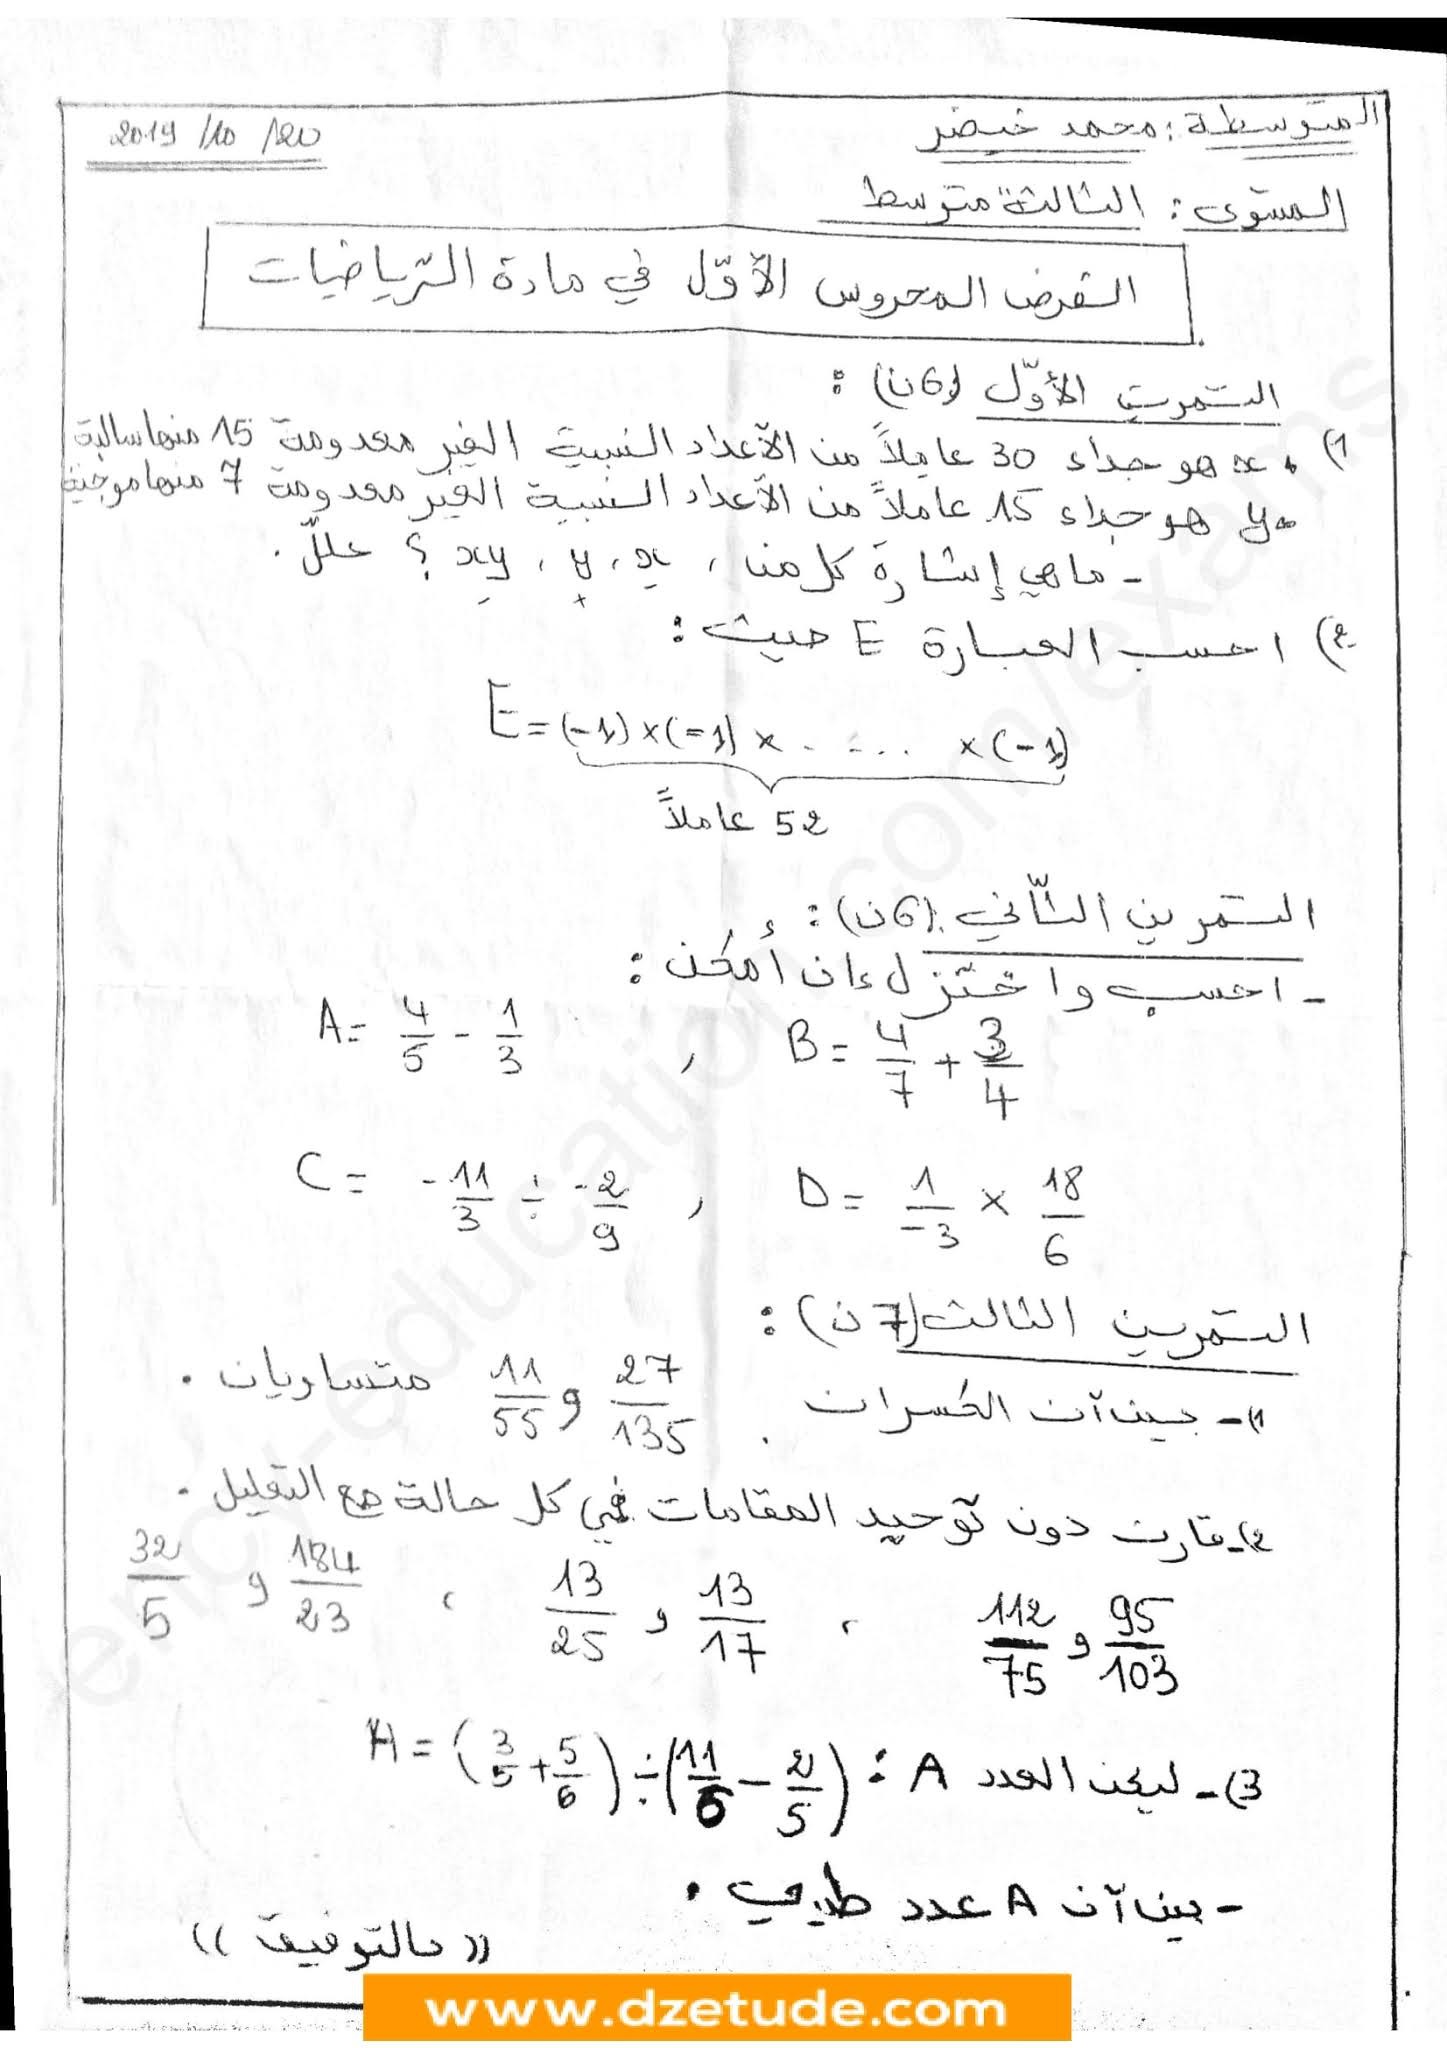 المتوسطة : محمد خيضر
2019/10/20
المستوى : الثالثة متوسط
الفرض المحروس الأوّل في مادة الرّياضيات
التمرين الأوّل (6ن) :
1) • x هو جداء 30 عاملاً من الأعداد النسبية الغير معدومة 15 منها سالبة
• y هو جداء 15 عاملاً من الأعداد النسبية الغير معدومة 7 منها موجبة
- ما هي إشارة كل من ، x ، y ، xy ؟ علّل .
+ -
2) احسب العبارة E حيث :
E = (-1) × (-1) × . . . . . × (-1)
52 عاملاً
التمرين الثّاني (6ن) :
- احسب واختزل إن أمكن :
A = 4/5 - 1/3 , B = 4/7 + 3/4
C = -11/3 ÷ -2/9 , D = 1/-3 × 18/6
التمرين الثالث (7ن) :
1)- بين أن الكسران 27/135 و 11/55 متساويان .
2)- قارن دون توحيد المقامات في كل حالة مع التعليل .
95/103 و 112/75 ، 13/17 و 13/25 ، 184/23 و 32/5
3)- ليكن العدد A : A = (3/5 + 5/6) ÷ (11/6 - 2/5)
- بين أن A عدد طبيعي .
« بالتوفيق »
www.dzetude.com
ency-education.com/exams